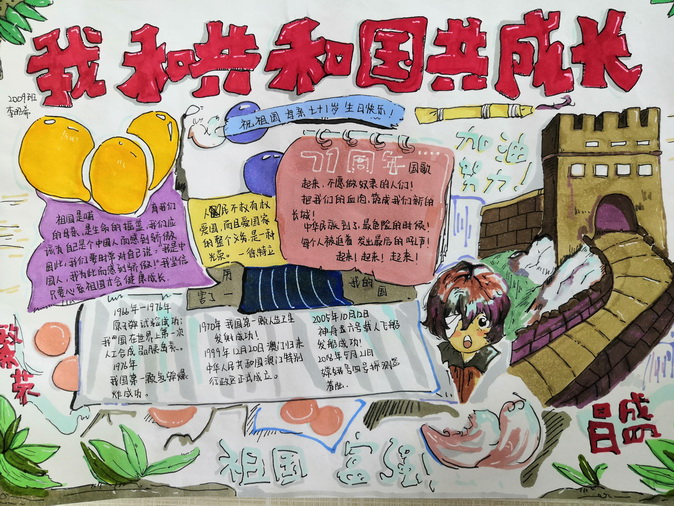 我和共和国共成长
2009班
祝祖国母亲七十一岁生日快乐!
加油
努力!
71周年
国歌
起来,不愿做奴隶的人们!
把我们的血肉,筑成我们新的
长城!
中华民族到了,最危险的时候!
每个人被迫着发出最后的吼声!
起来!起来!起来!
人民不仅有权
爱国,而且爱国家
的整个义务,是一种
光荣。
祖国是咱
有我们
的母亲,是生命的摇篮,我们应
该为自己是个中国人而感到骄傲。
因此,我们要时常对自己说:"我是中
国人,我为此而感到骄傲!"我坚信
只要心系祖国才会健康成长。
历
害了
我的
国
1966年-1976年
原子弹试验成功;
我国在世界上第一次
人工合成胰岛素。
1976年
我国第一颗氢弹爆
炸成功。
1970年我国第一颗人造卫星
发射成功!
1999年12月20日澳门归来
中华人民共和国澳门特别
行政区正式成立。
2005年10月12日
神舟六号载人飞船
发船成功!
繁荣
昌盛
祖国富强!